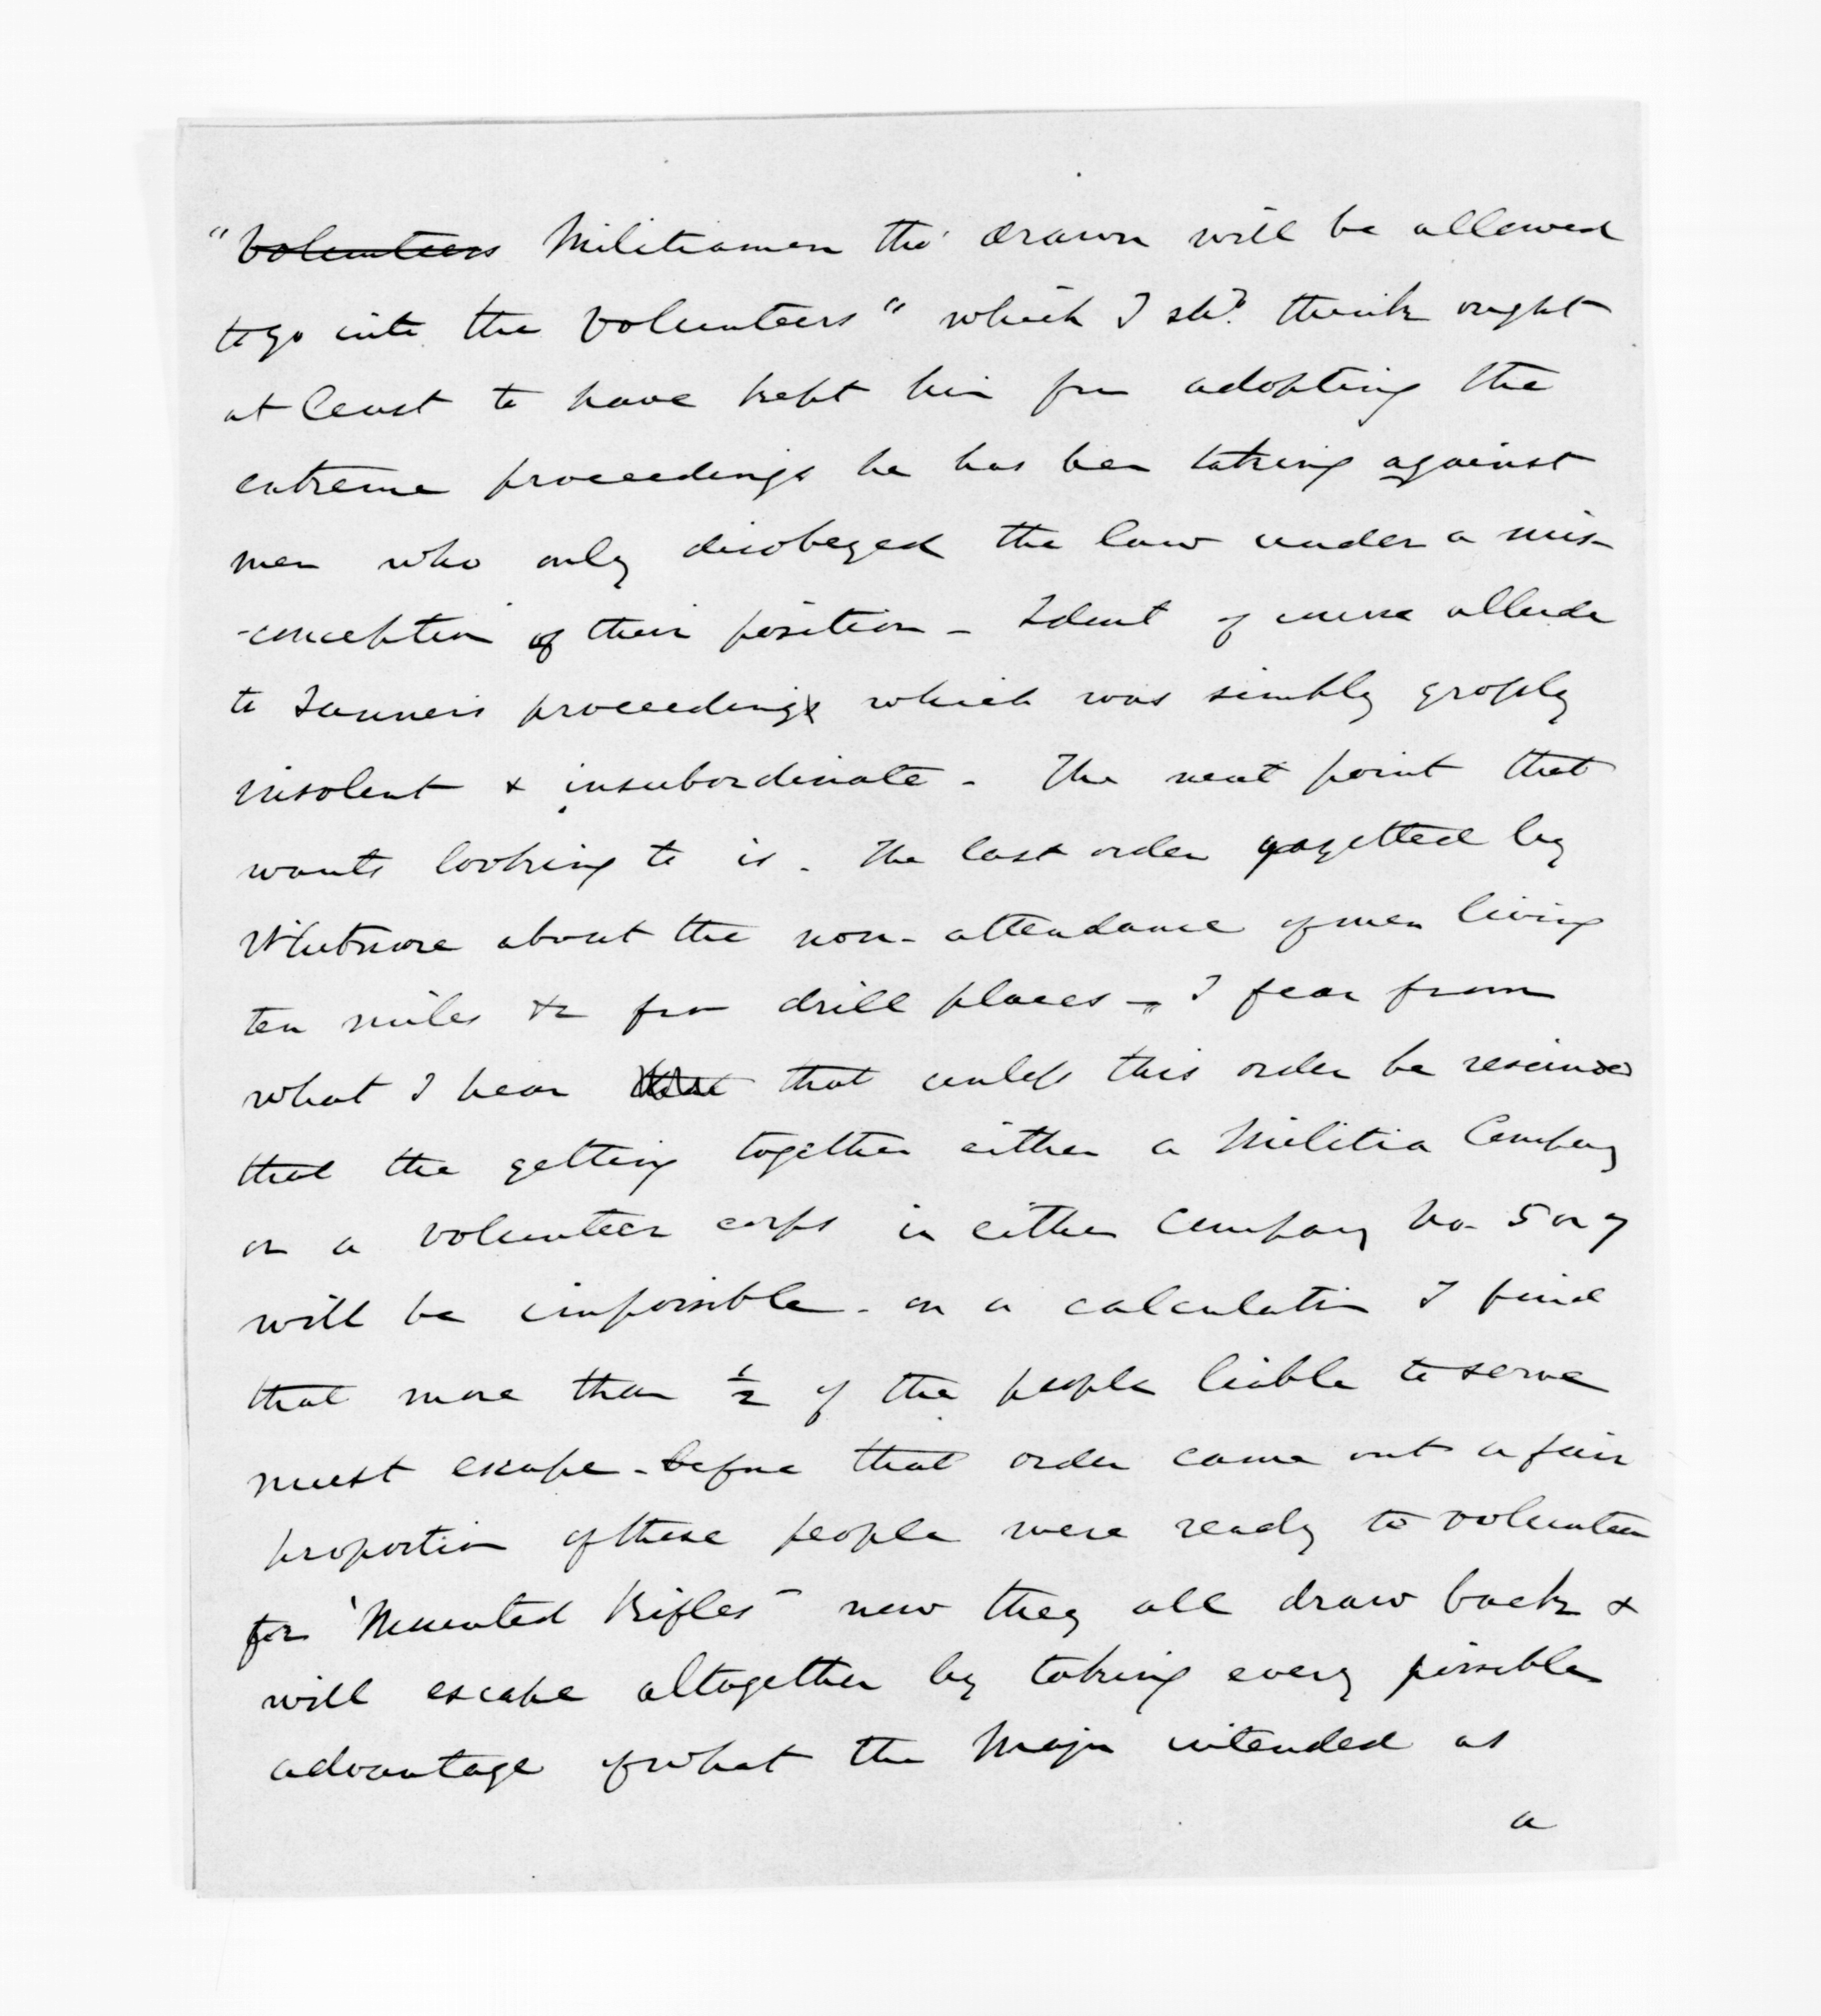 "~~Volunteers~~ Militiamen tho' drawn will be allowed
to go into the Volunteers" which I shd. think ought
at least to have kept him from adopting the
extreme proceedings he has been taking against
men who only disobeyed the law under a mis-
-conception of their position - I dont of course allude
to proceeding which was simply grossly
insolent & insubordinate - The next point that
wants looking to is - The last order gazetted by
Whitmore about the non-attendance of men living
ten miles &c from drill places - I fear from
what I hear that unless this order be rescinded
that the getting together either a Militia Company
or a volunteer corps in either Company No. 5 or 7
will be impossible - on a calculation I find
that more than ½ of the people liable to serve
must escape - before that order came out a fair
proportion of these people were ready to volunteer
for "Mounted Rifles" now they all draw back &
will escape altogether by taking every possible
advantage of what the Major intended as
a